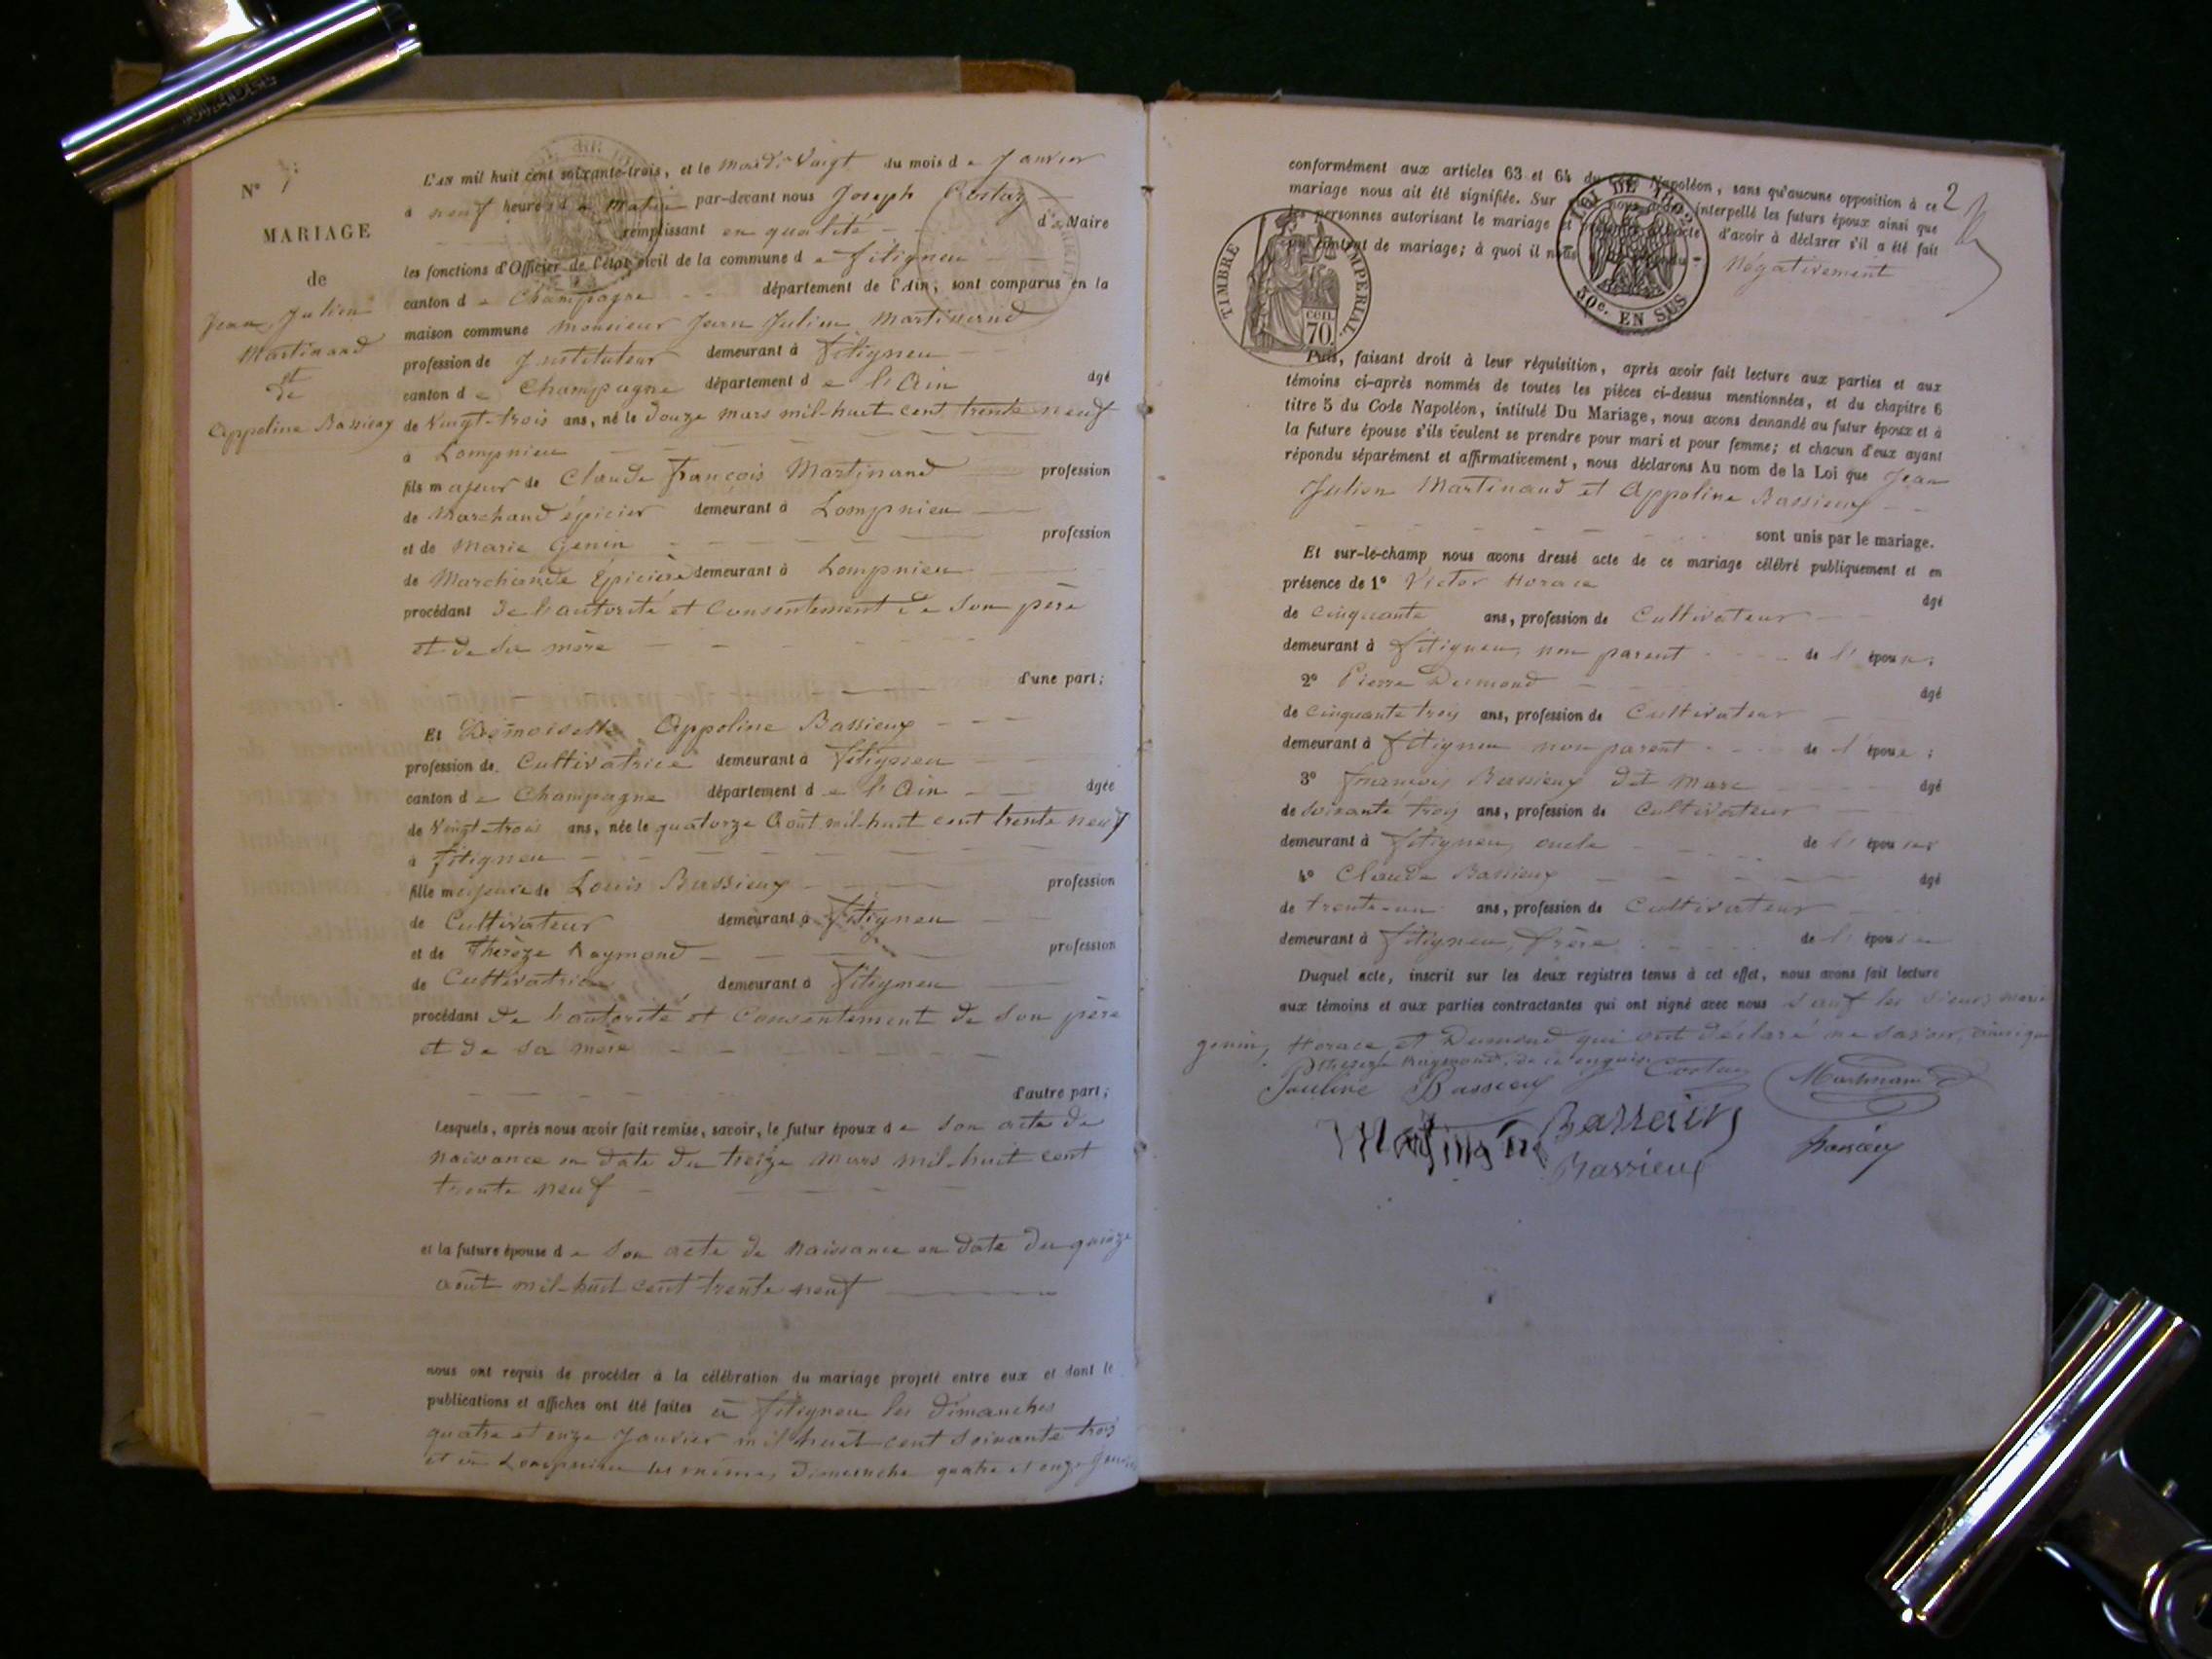 N° 1
MARIAGE
de
Jean Julien
Martinand
et
de
Appoline Bassieux
L'AN mil huit cent soixante-trois, et le mardi Vingt du mois de Janvier
à neuf heures du matin par-devant nous Joseph Costaz
remplissant en qualité de Maire
les fonctions d'Officier de l'état civil de la commune de fitigneu
canton de Champagne département de l'Ain, sont comparus en la
maison commune monsieur Jean Julien Martinand
profession de Instituteur demeurant à fitigneu
canton de Champagne département de l'Ain âgé
de Vingt-trois ans, né le Douze mars mil-huit cent trente neuf
à Lompnieu
fils majeur de Claude françois Martinand profession
de Marchand épicier demeurant à Lompnieu
et de Marie Genin profession
de Marchande Épicière demeurant à Lompnieu
procédant de l'autorité et Consentement de son père
et de sa mère
d'une part;
Et Demoiselle Appoline Bassieux
profession de Cultivatrice demeurant à fitigneu
canton de Champagne département de l'Ain âgée
de Vingt-trois ans, née le quatorze Août mil-huit cent trente neuf
à fitigneu
fille majeure de Louis Bassieux profession
de Cultivateur demeurant à fitigneu
et de Thérèze Raymond profession
de Cultivatrice demeurant à fitigneu
procédant de l'autorité et Consentement de son père
et de sa mère
d'autre part;
Lesquels, après nous avoir fait remise, savoir, le futur époux de son acte de
naissance en date du treize Mars mil-huit cent
trente neuf
et la future épouse de son acte de naissance en date du quinze
août mil-huit cent trente neuf
nous ont requis de procéder à la célébration du mariage projeté entre eux et dont le
publications et affiches ont été faites à fitigneu les dimanches
quatre et onze Janvier mil huit-cent soixante trois
et à Lompnieu les mêmes Dimanche quatre et onze Janvier
conformément aux articles 63 et 64 du Code Napoléon, sans qu'aucune opposition à ce
2
mariage nous ait été signifiée. Sur nous avons interpellé les futurs époux ainsi que
les personnes autorisant le mariage et d'avoir à déclarer s'il a été fait
un contrat de mariage; à quoi il nous Négativement
TIMBRE IMPERIAL.
CEN. 70.
LOI DE 1862
50c. EN SUS
Puis, faisant droit à leur réquisition, après avoir fait lecture aux parties et aux
témoins ci-après nommés de toutes les pièces ci-dessus mentionnées, et du chapitre 6
titre 5 du Code Napoléon, intitulé Du Mariage, nous avons demandé au futur époux et à
la future épouse s'ils veulent se prendre pour mari et pour femme; et chacun d'eux ayant
répondu séparément et affirmativement, nous déclarons Au nom de la Loi que Jean
Julien Martinand et Appoline Bassieux
sont unis par le mariage.
Et sur-le-champ nous avons dressé acte de ce mariage célébré publiquement et en
présence de 1° Victor Horace
âgé
de cinquante ans, profession de Cultivateur
demeurant à fitigneu, non parent de l'époux;
2° Pierre Dumond
âgé
de cinquante trois ans, profession de Cultivateur
demeurant à fitigneu non parent de l'époux;
3° françois Bassieux dit Marc âgé
de soixante trois ans, profession de Cultivateur
demeurant à fitigneu, oncle de l'épouse
4° Claude Bassieux âgé
de trente-un ans, profession de Cultivateur
demeurant à fitigneu, frère de l'épouse
Duquel acte, inscrit sur les deux registres tenus à cet effet, nous avons fait lecture
aux témoins et aux parties contractantes qui ont signé avec nous sauf les sieurs marie
genin, Horace et Dumond qui ont déclaré ne savoir, ainsi que
Thérèze Raymond, de ce enquis Costaz
Pauline Bassieux Martinand
Martinand Bassieux
Bassieux Bassieux